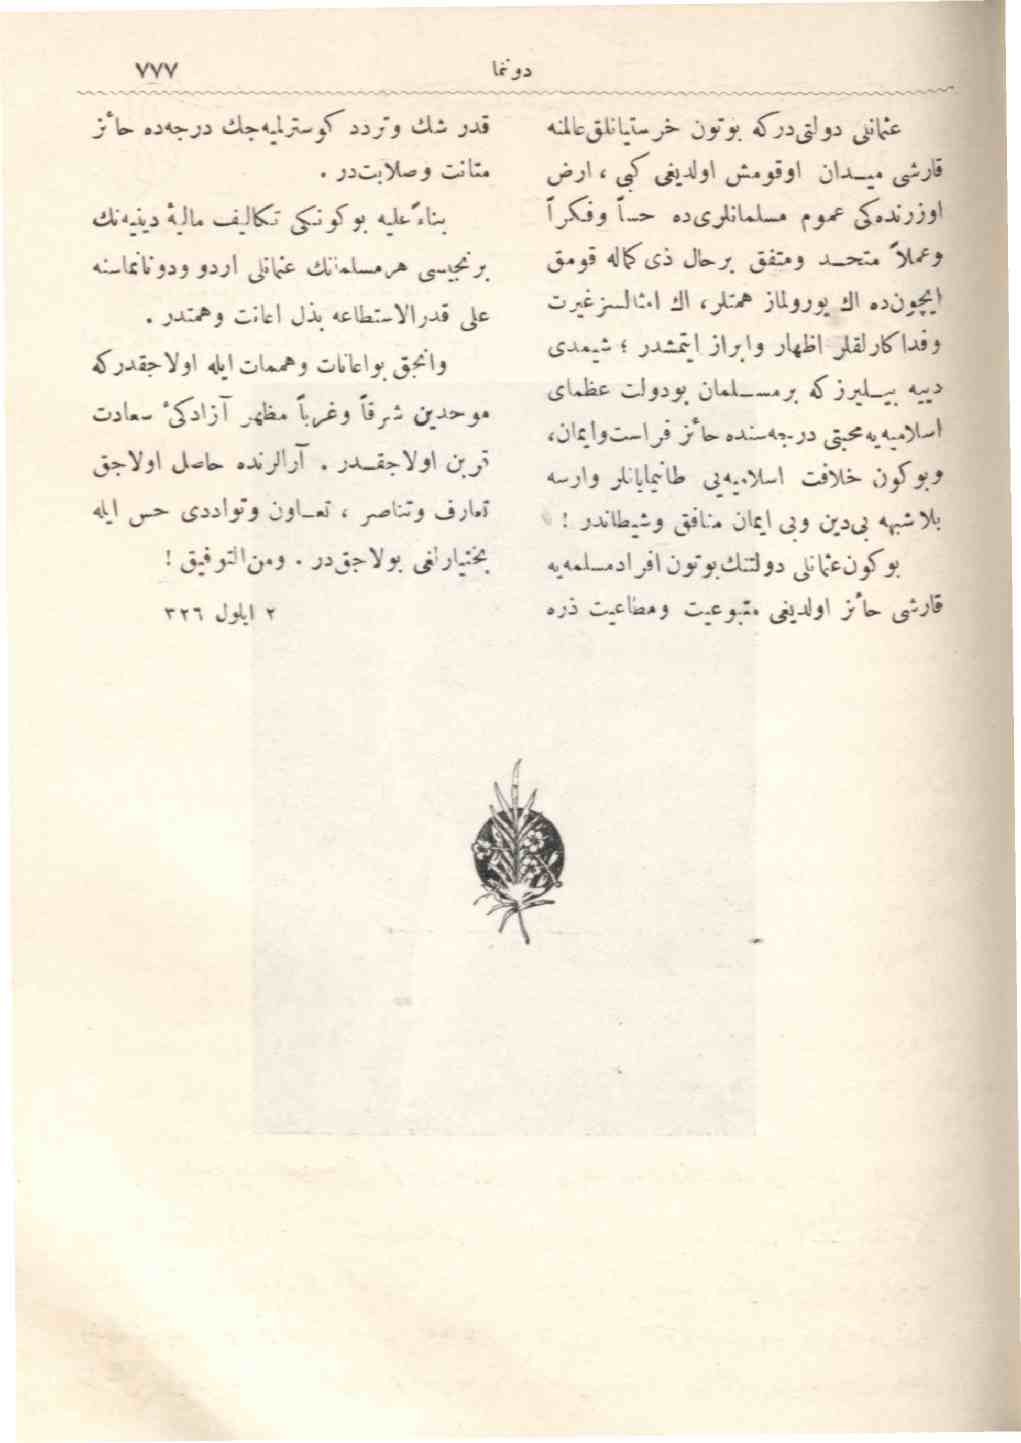 دوننما
٧٧٧
عثمانلی دولتی‌دركه بوتون خرستیانلق‌عالمنه
قارشی میـدان اوقومش اولدیغی كبی ، ارض
اوزرنده‌كی عموم مسلمانلری‌ده حساً وفكراً
وعملاً متحـد ومتفق برحال ذی كماله قومق
ایچون‌ده اك یورولماز همتلر، اك امثالسزغیرت
وفداكارلقلر اظهار وابراز ایتمشدر ؛ شیمدی
دییه بیـلیرز كه برمسـلمان بودولت عظمای
اسلامیه‌یه‌محبتی درجه‌سنده حائز فراست‌وایمان،
وبوكون خلافت اسلامیه‌یی طانیمایانلر وارسه
بلاشبهه بی‌دین وبی ایمان منافق وشیطاندر !
بوكون‌عثمانلی دولتنك‌بوتون افرادمسلمه‌یه
قارشی حائز اولدیغی متبوعیت ومطاعیت ذره
قدر شك وتردد كوسترلمیه‌جك درجه‌ده حائز
متانت وصلابت‌در .
بناءً‌علیه بوكونكی تكالیف مالیهٔ دینیه‌نك
برنجیسی هرمسلمانك عثمانلی اردو ودونانماسنه
علی قدرالاستطاعه بذل اعانت وهمتدر .
وانجق بواعانات وهممات ایله اولاجقدركه
موحدین شرقاً وغرباً مظهر آزادكیٔ سعادت
ترین اولاجقـدر . آرالرنده حاصل اولاجق
تعارف وتناصر ، تعـاون وتواددی حس ایله
بختیارلغی بولاجق‌در . ومن‌التوفیق !
٢ ایلول ٣٢٦